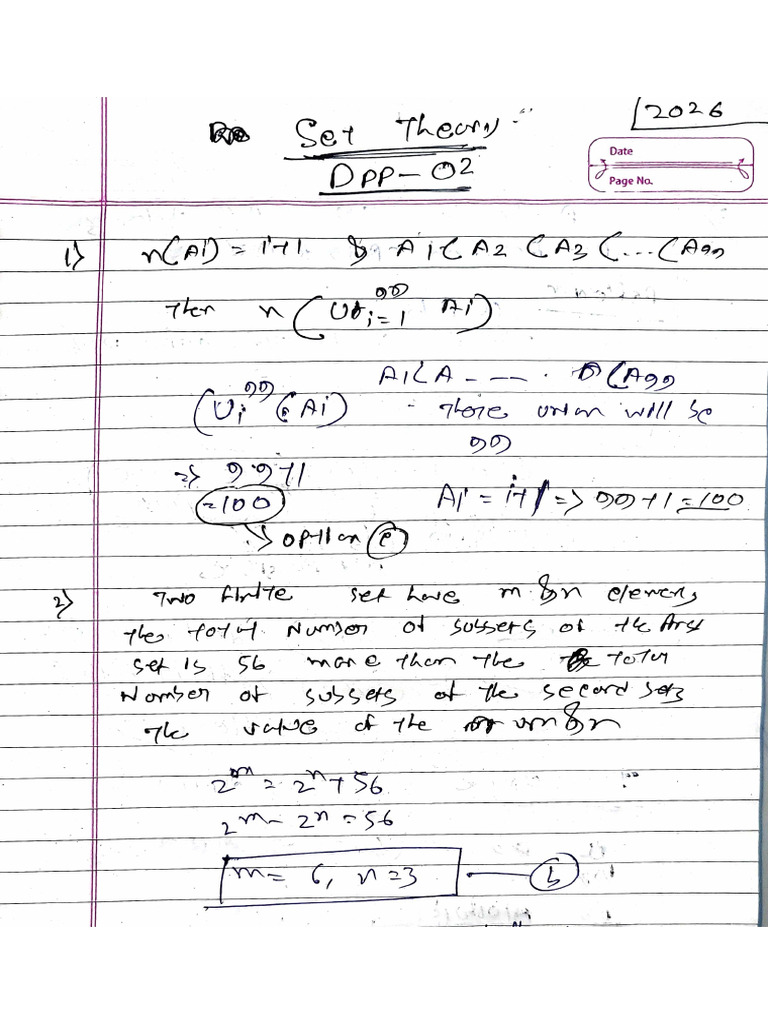 Set Theory
2026
DPP-02
Date
Page No.
1) n(Ai) = i+1 & A1 ⊂ A2 ⊂ A3 ⊂ ... ⊂ A99
then n(∪ 99 i=1 Ai)
A1 ⊂ A - -- . ⊂ A99
(∪i 99 (Ai) - there union will be
99
=> 99+1
=100 Ai = i+1 => 99+1 = 100
-> option c
2) Two finite set have m & n elements
the total number of subsets of the first
set is 56 more than the total
Number of subsets of the second sets
the value of the m & n
2^m = 2^n + 56
2^m - 2^n = 56
m = 6, n = 3 — b